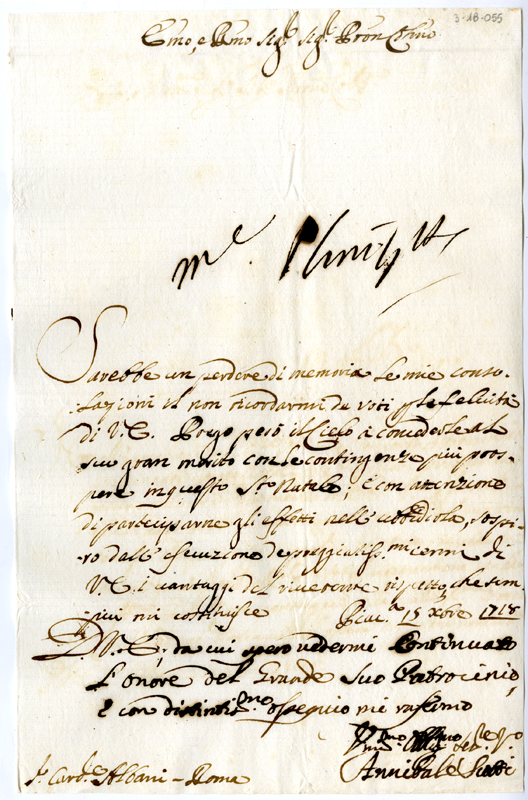 3-18-055
Emo, e Rmo Sigr Sigr Pron Colmo
Sarebbe un perdere di memoria le mie conso-
lazioni il non ricordarmi de voti p le felicità
di V. E. Prego però il Cielo à concederle al
suo gran merito con le contingenze più pros-
pere in questo Sto Natale; e con attenzione
di participarne gli effetti nell' ubbidirla, sospi-
ro dall' esecuzione de pregiatiss. mi cenni di
V. E. i vantaggi del riverente rispetto, che sem-
pre mi costituisce 15 Xbre 1718
Di V. E., da cui spero vedermi Continuato
L'onore del Grande suo Patrocinio,
è con distintismo ossequio mi rassegno
Annibale
Sr Cardl Albani - Roma